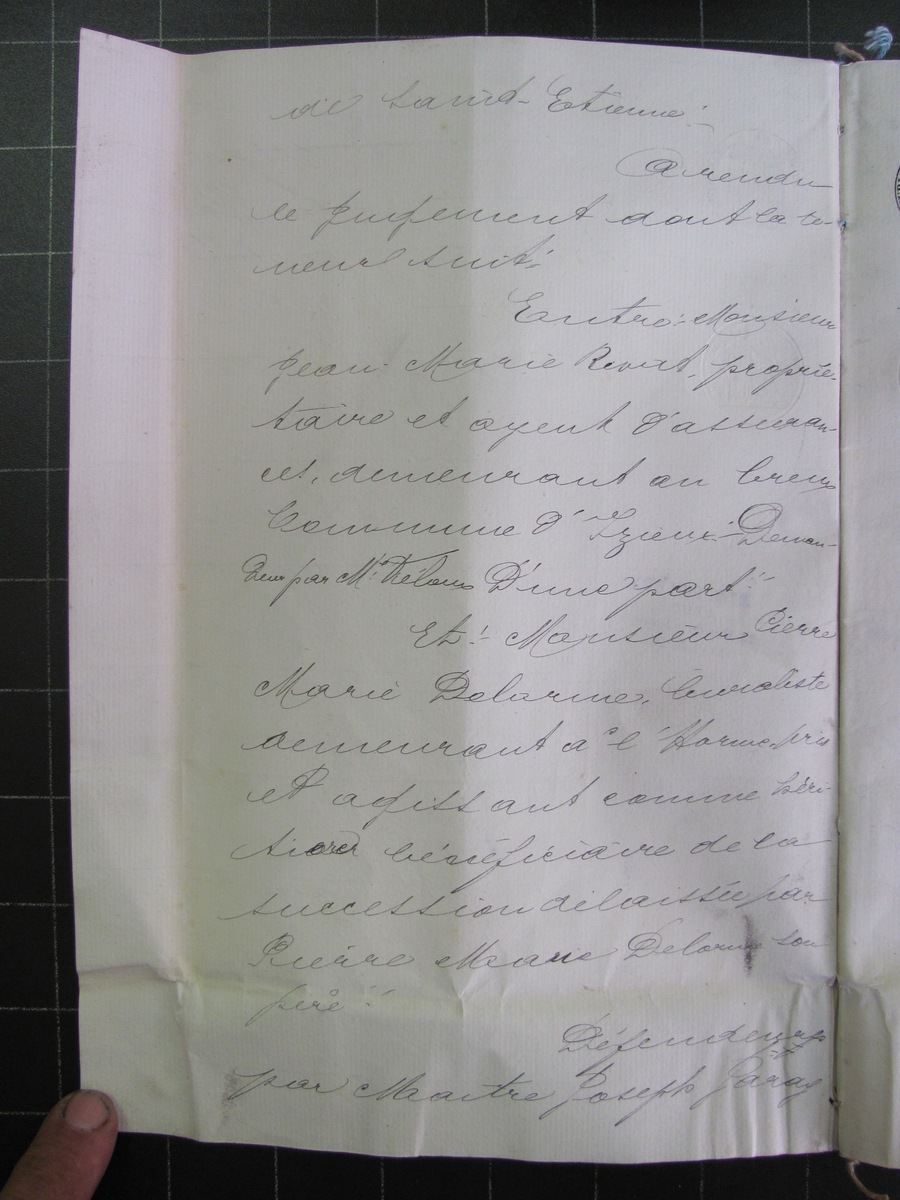 de Saint-Etienne.
A rendu
le jugement dont la te-
neur suit:
Entre: Monsieur
Jean Marie Revut, proprié-
taire et agent d'assuran-
ces, demeurant au Creux
Commune d'Izieux Deman-
deur par Me D'une part."
Et: Monsieur Pierre
Marie Delorme, buraliste
demeurant à l'Horme, pris
et agissant comme héri-
tier bénéficiaire de la
succession délaissée par
Pierre Marie Delorme son
père."
Défendeur
par Maitre Joseph